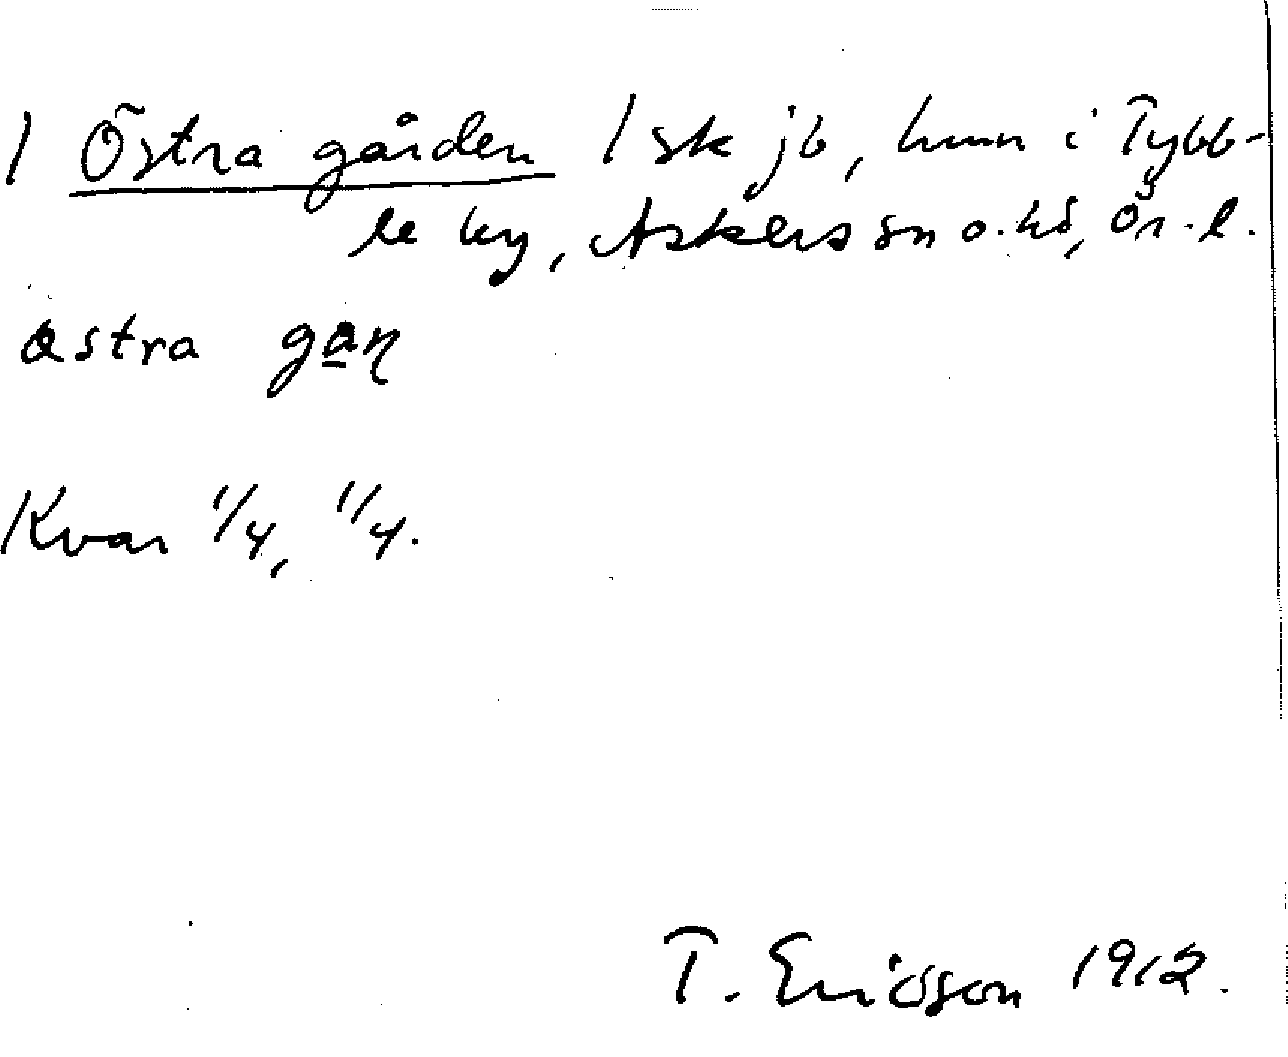 1 Östra gården 1 sk jb, hmn i Tybb-
le by, Askers sn o. hd, Ör. l.
östra gan̥
Kvar 1/4, 1/4.
T. Ericsson 1912.